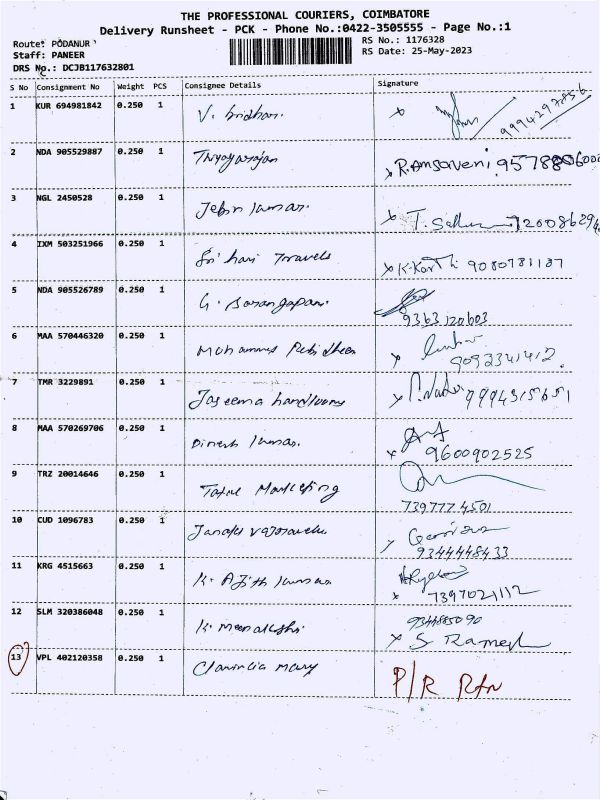 THE PROFESSIONAL COURIERS, COIMBATORE
Delivery Runsheet - PCK - Phone No.:0422-3505555 - Page No.:1
Route: PODANUR
RS No.: 1176328
Staff: PANEER
RS Date: 25-May-2023
DRS No.: DCJB117632801
S No Consignment No Weight PCS Consignee Details Signature
1 KUR 694981842 0.250 1 V.
2 NDA 905529887 0.250 1 Thiyagarajan R.Amsaveni
3 NGL 2450528 0.250 1 Jebin kumar. T.
4 IXM 503251966 0.250 1 Sri hari Travels K.Karthi 9080781187
5 NDA 905526789 0.250 1 G. 9363120603
6 MAA 570446320 0.250 1 9092341412.
7 TMR 3229891 0.250 1 Jaseema handlooms 9994315651
8 MAA 570269706 0.250 1 Dinesh kumar. 9600902525
9 TRZ 20014646 0.250 1 Marketing 7397774501
10 CUD 1096783 0.250 1 Janaki 9344448433
11 KRG 4515663 0.250 1 K. Ajith kumar 7397021112
12 SLM 320386048 0.250 1 K. Meenakshi S Ramesh
13 VPL 402120358 0.250 1 Mary P/R Rtn